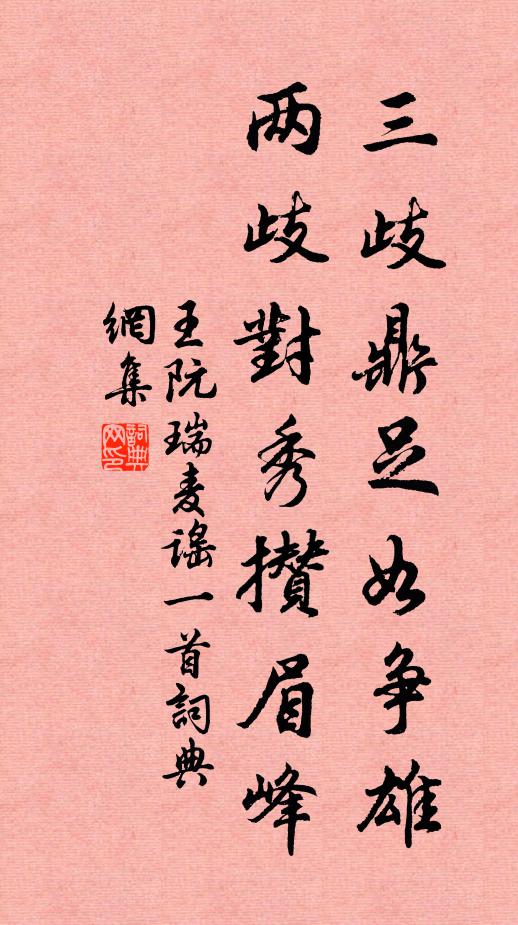 三歧鼎足如争雄
两歧對秀攢眉峰
王阮瑞麦谣一首詞典
網集
詞典网印